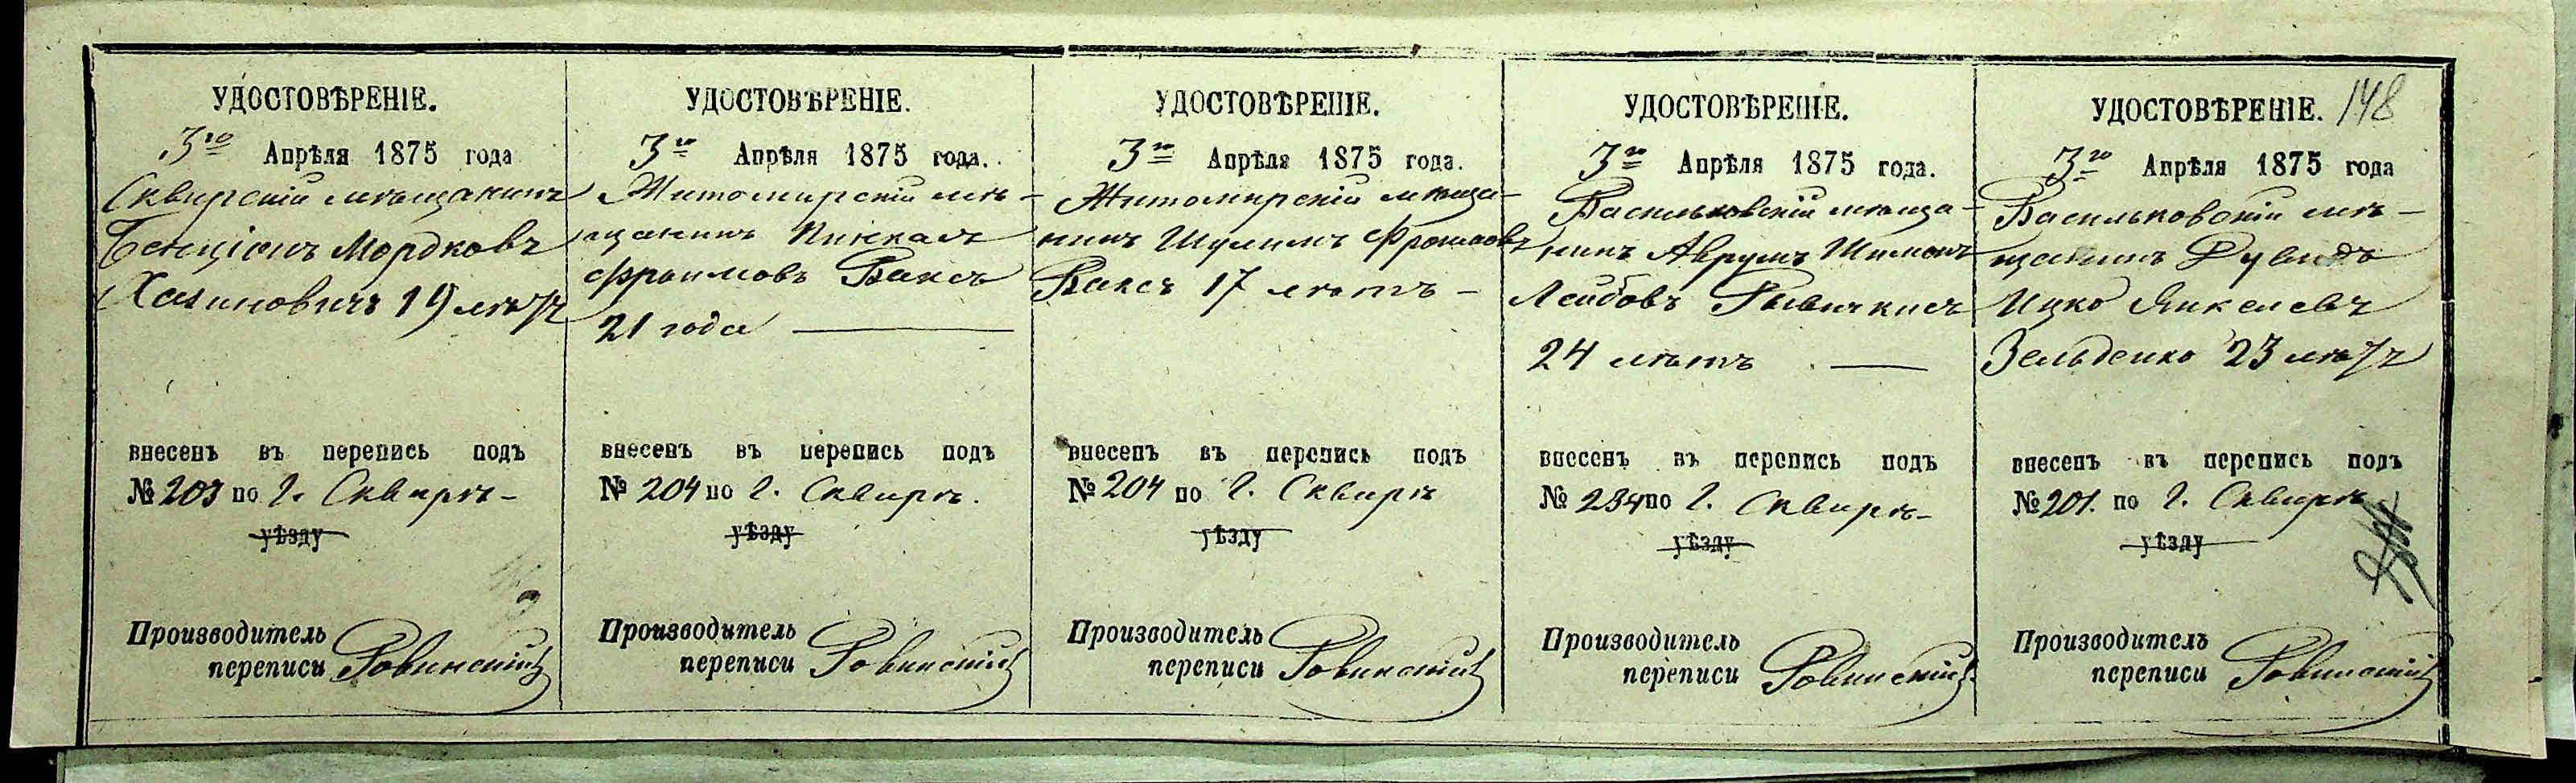 УДОСТОВѢРЕНІЕ.
3го Апрѣля 1875 года
Сквирскій мѣщанинъ
Бенціонъ Мордковъ
Хаимовичъ 19 лѣтъ
внесенъ въ перепись подъ
№ 203 по г. Сквирѣ-
уѣзду
Производитель
переписи Ровинскій
УДОСТОВѢРЕНІЕ.
3го Апрѣля 1875 года.
Житомирскій мѣ-
щанинъ Пинкасъ
Фроимовъ Баксъ
21 года —
внесенъ въ перепись подъ
№ 204 по г. Сквирѣ.
уѣзду
Производитель
переписи Ровинскій
УДОСТОВѢРЕНІЕ.
3го Апрѣля 1875 года.
Житомирскій мѣща-
нинъ Шулимъ Фроимовъ
Баксъ 17 лѣтъ -
внесенъ въ перепись подъ
№ 204 по г. Сквирѣ
уѣзду
Производитель
переписи Ровинскій
УДОСТОВѢРЕНІЕ.
3го Апрѣля 1875 года.
Васильковскій мѣща-
нинъ Аврумъ Шимонъ
Лейбовъ
24 лѣтъ —
внесенъ въ перепись подъ
№ 234 по г. Сквирѣ-
уѣзду
Производитель
переписи Ровинскій
УДОСТОВѢРЕНІЕ. 148
3го Апрѣля 1875 года
Васильковскій мѣ-
щанинъ Дувидъ
Ицко Янкелевъ
Зельденко 23 лѣтъ
внесенъ въ перепись подъ
№ 201. по г. Сквирѣ
уѣзду
Производитель
переписи Ровинскій